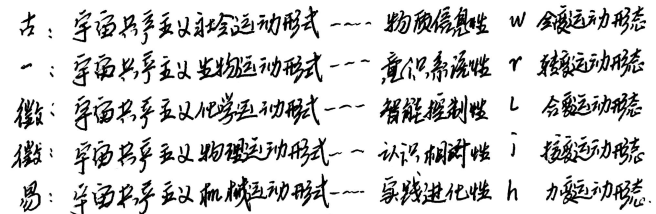 古：宇宙共享主义社会运动形式---- 物质信息性 w 全变运动形态
一：宇宙共享主义生物运动形式---- 意识系语性 r 转变运动形态
微：宇宙共享主义化学运动形式---- 智能控制性 L 合变运动形态
微：宇宙共享主义物理运动形式---- 认识相对性 i 接变运动形态
易：宇宙共享主义机械运动形式---- 实践进化性 h 力变运动形态